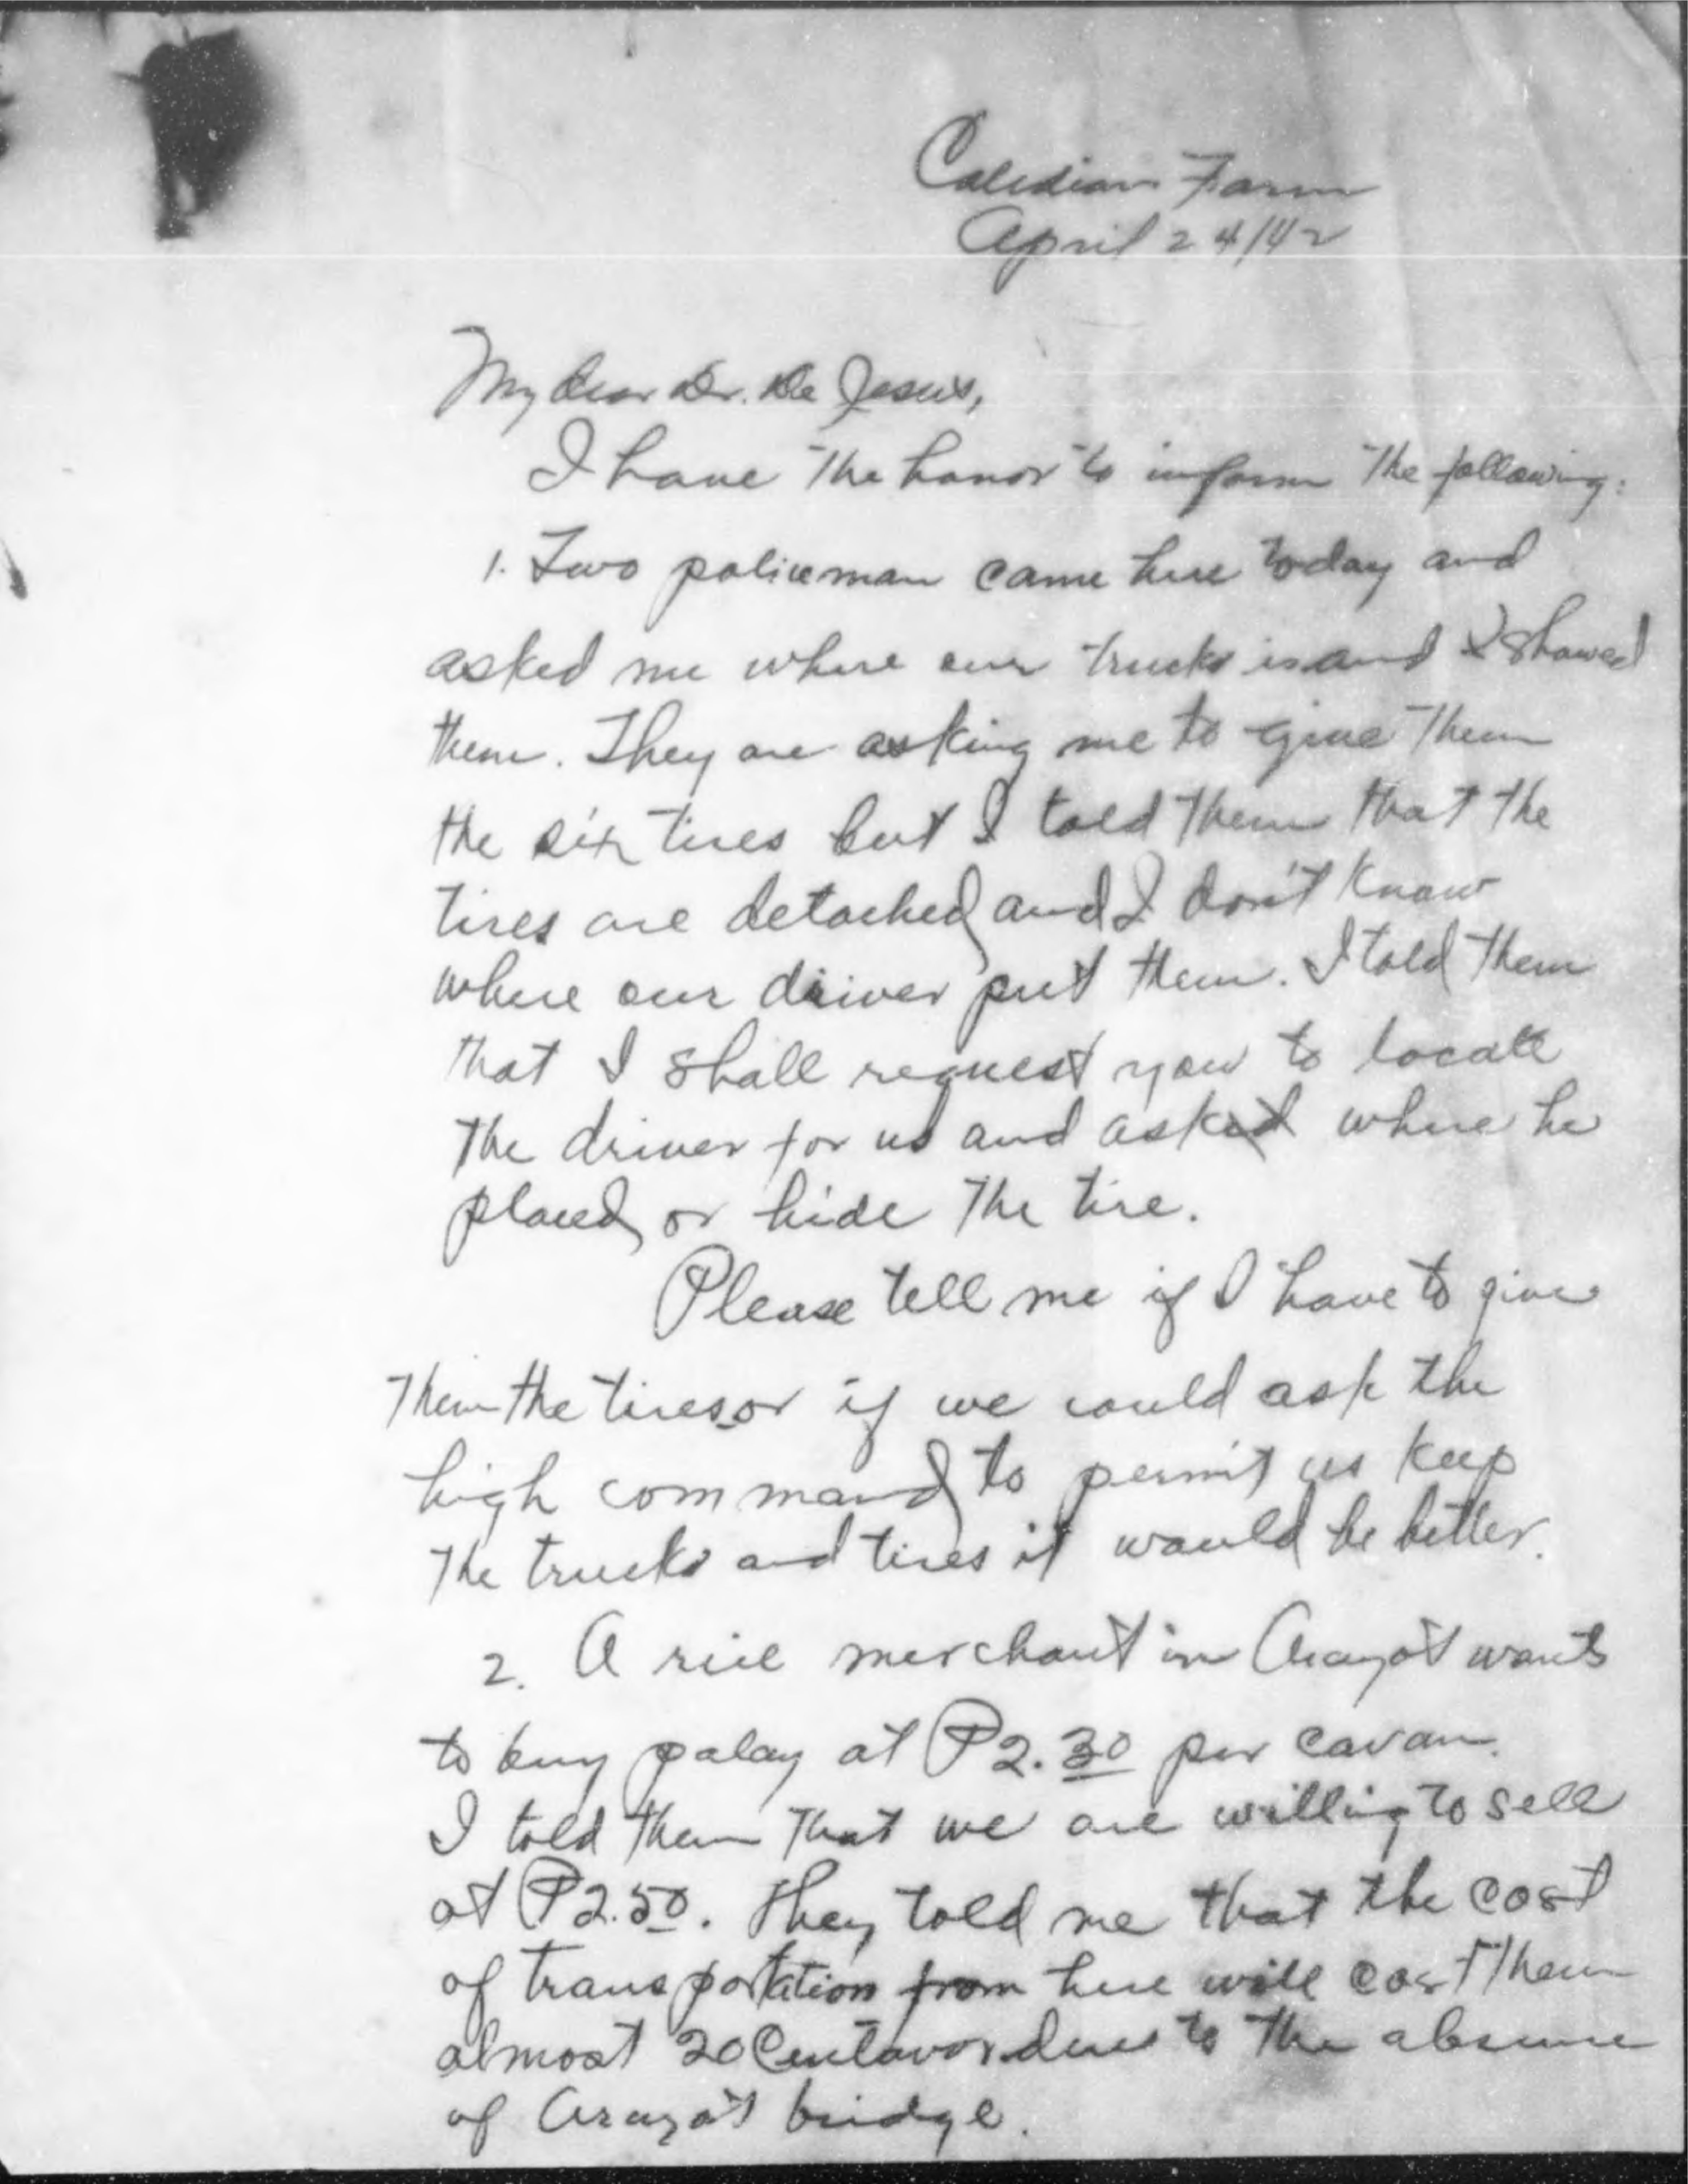 Caledian Farm
April 24/42
My dear Dr. De Jesus,
I have the honor to inform the following:
1. Two policeman came here today and
asked me where our trucks is and I showed
them. They are asking me to give them
the six tires but I told them that the
tires are detached and I don't know
where our driver put them. I told them
that I shall request you to locate
the driver for us and ask where he
placed or hide the tire.
Please tell me if I have to give
them the tires or if we could ask the
high command to permit us keep
the trucks and tires it would be better.
2. A rice merchant in Arayat wants
to buy palay at ₱2.30 per cavan.
I told them that we are willing to sell
at ₱2.50. They told me that the cost
of transportation from here will cost them
almost 20 Centavos due to the absence
of Arayat bridge.